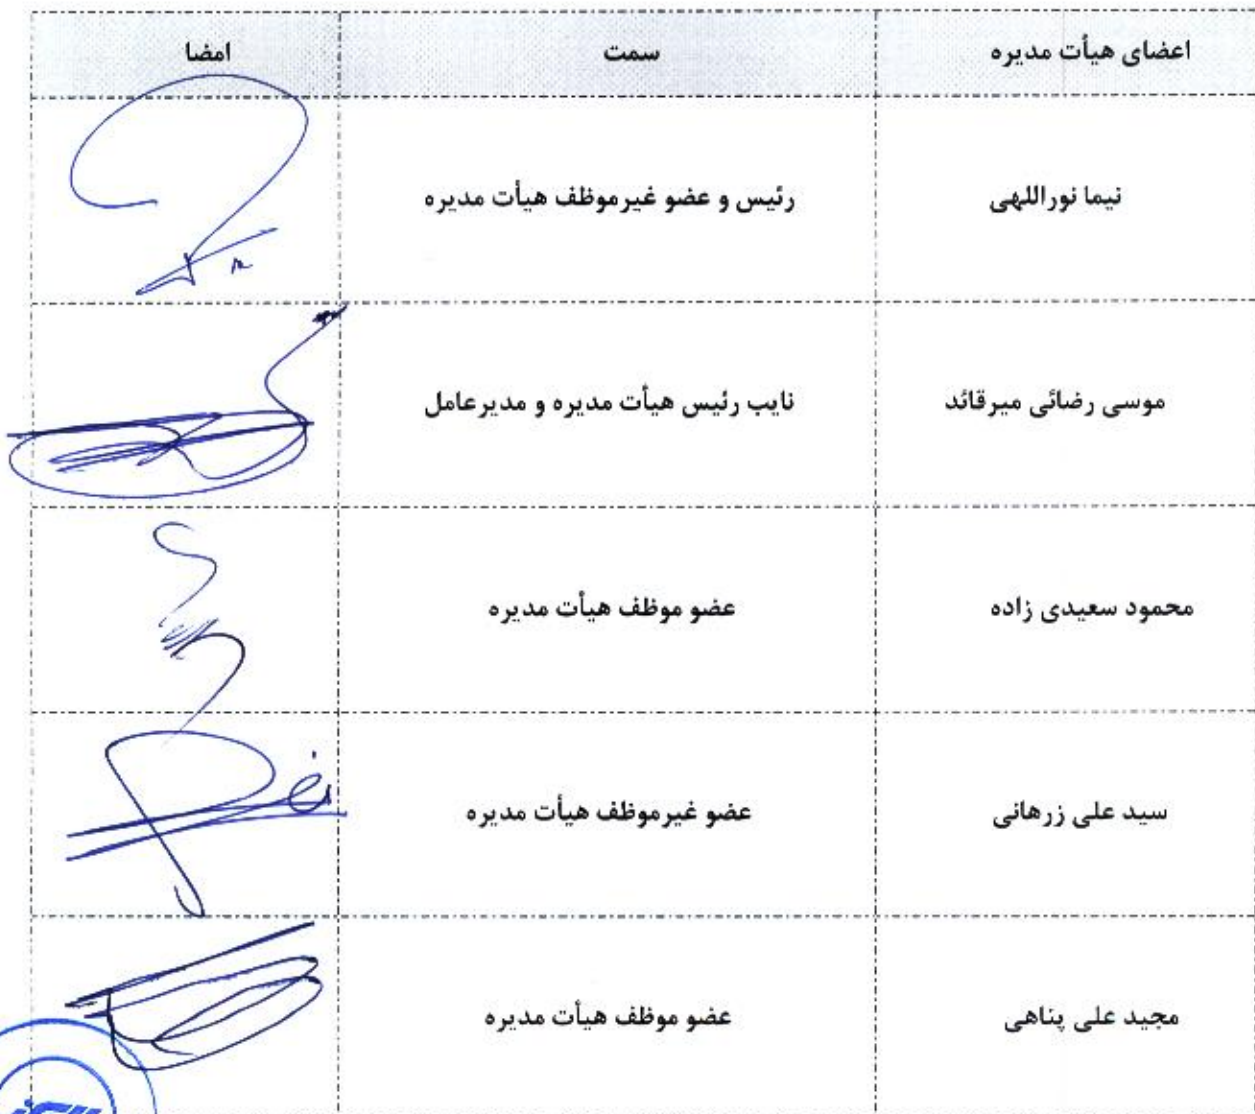 اعضای هیأت مدیره سمت امضا
نیما نوراللهی رئیس و عضو غیرموظف هیأت مدیره
موسی رضائی میرقائد نایب رئیس هیأت مدیره و مدیرعامل
محمود سعیدی زاده عضو موظف هیأت مدیره
سید علی زرهانی عضو غیرموظف هیأت مدیره
مجید علی پناهی عضو موظف هیأت مدیره